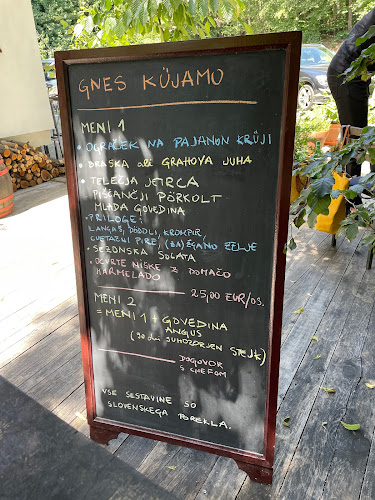 GNES KÜJAMO
MENI 1
• OCRAČEK NA PAJANON KRÜJI
• BRAŠKA ali GRAHOVA JUHA
• TELEČJA JETRCA
PIŠČANČJI PÖRKOLT
MLADA GOVEDINA
• PRILOGE:
LANGAŠ, DÖDDLI, KROMPIR,
CVETAČNI PIRE, (ZA)ŽGANO ZELJE
• SEZONSKA SOLATA
• OCVRTE NIŠKE Z DOMAČO
MARMELADO
25,00 EUR/OS.
MENI 2
= MENI 1 + GOVEDINA
ANGUS
(90 dni SUHOZORJEN STEJK)
DOGOVOR
S CHEFOM
VSE SESTAVINE SO
SLOVENSKEGA POREKLA.